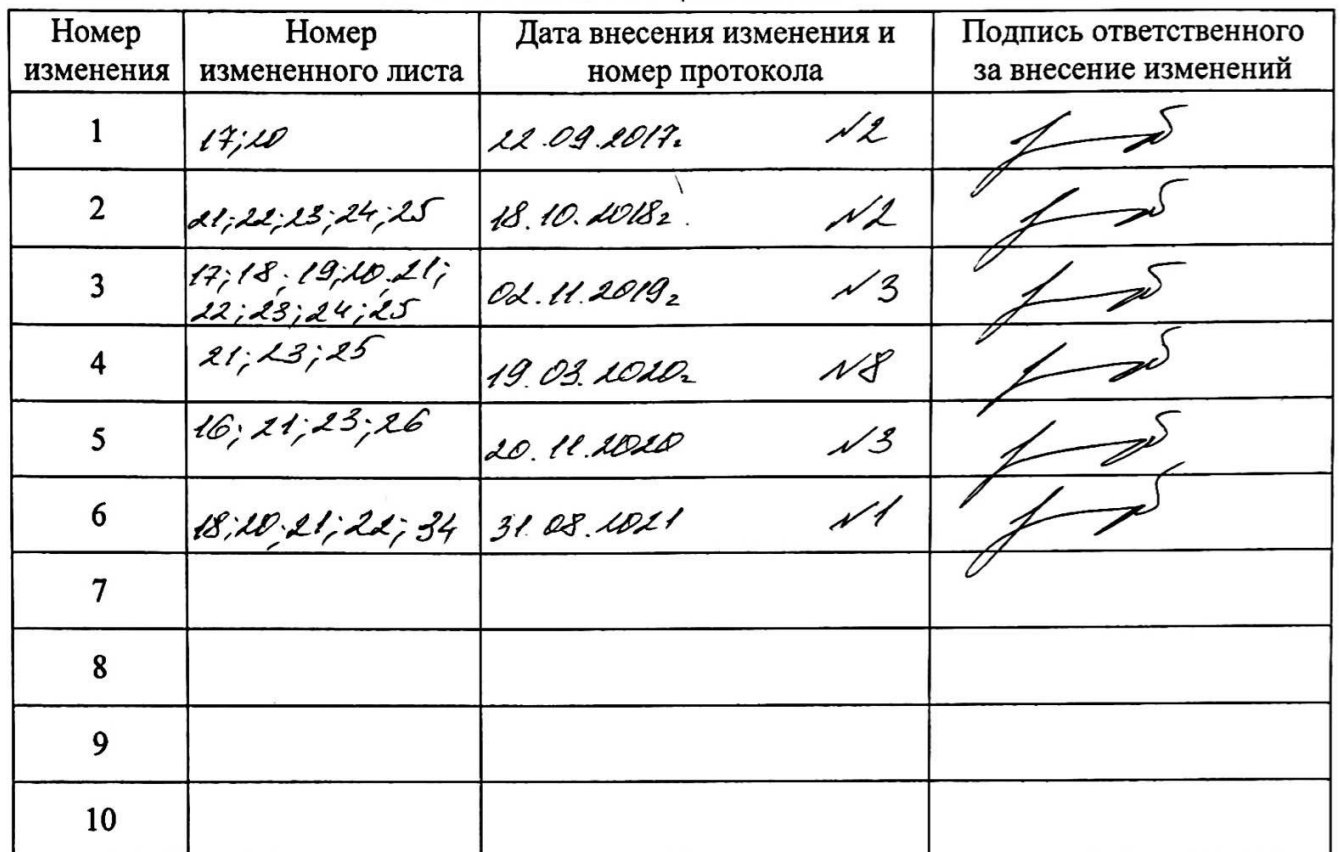 Номер изменения Номер измененного листа Дата внесения изменения и номер протокола Подпись ответственного за внесение изменений
1 17;20 22.09.2017г №2
2 21;22;23;24;25 18.10.2018г. №2
3 17;18;19;20.21;
22;23;24;25 02.11.2019г №3
4 21;23;25 19.03.2020г №8
5 16;21;23;26 20.11.2020 №3
6 18;20;21;22;34 31.08.2021 №1
7
8
9
10